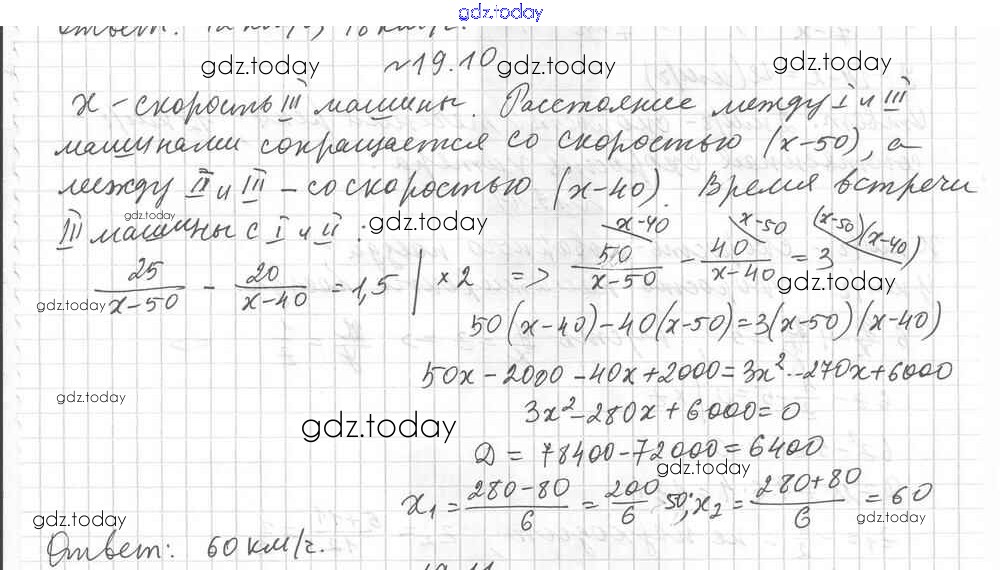 gdz.today
Ответ: 12 км/ч, 18 км/ч.
№19.10
gdz.today gdz.today gdz.today
x – скорость III машины. Расстояние между I и III
машинами сокращается со скоростью (x-50), а
между II и III – со скоростью (x-40). Время встречи
gdz.today
III машины с I и II :
gdz.today
25/(x-50) - 20/(x-40) = 1,5 | ×2 => 50/(x-50) \x-40 - 40/(x-40) \x-50 = 3 \(x-50)(x-40)
gdz.today gdz.today
50(x-40)-40(x-50)=3(x-50)(x-40)
50x-2000-40x+2000=3x²-270x+6000
gdz.today
3x²-280x+6000=0
gdz.today
D = 78400-72000=6400
gdz.today
x₁ = (280-80)/6 = 200/6 50; x₂ = (280+80)/6 = 60
gdz.today gdz.today
Ответ: 60 км/ч.